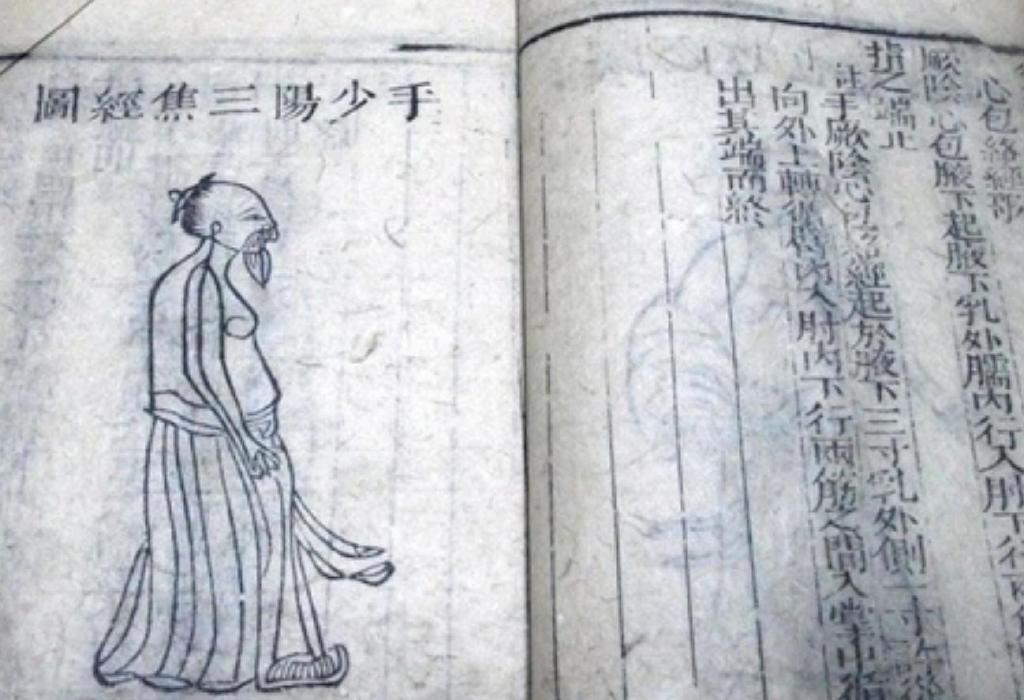 心包絡經歌
厥陰心包腋下起腋下乳外臑內行入肘下行
指之端止
註手厥陰心包絡經起於腋下三寸乳外側一寸
向外上轉從臑內入肘內下行兩筋之間入掌中出
出其端而終
手少陽三焦經圖